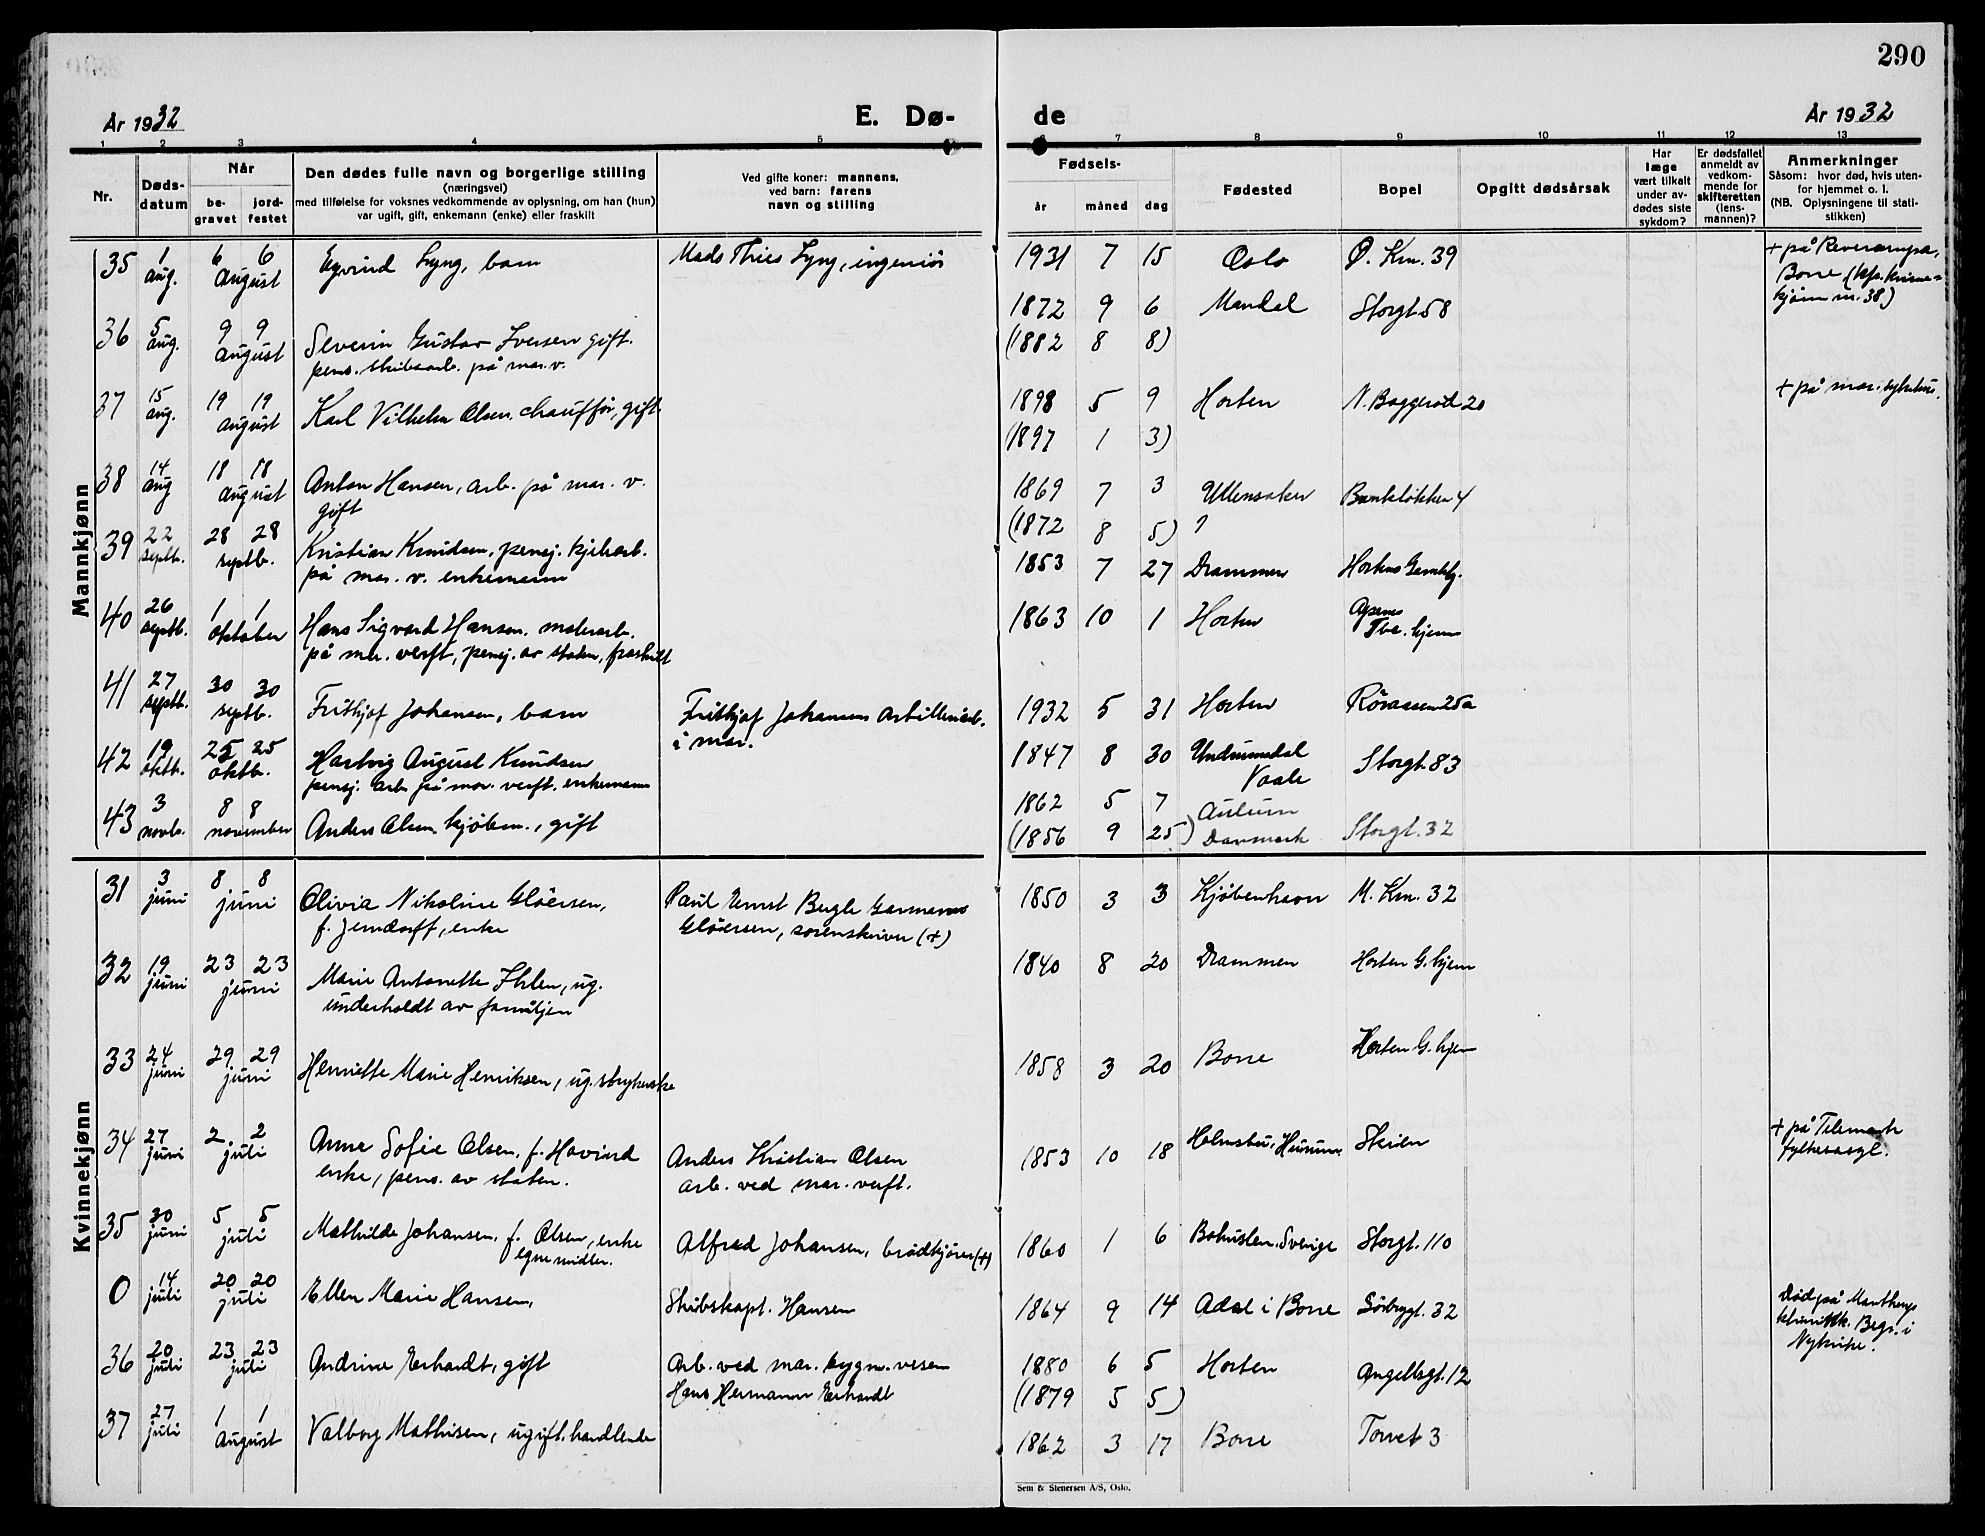 290
År 1932
E. Dø-
de
År 1932
1 2 3 4 5 6 7 8 9 10 11 12 13
Nr.
Døds-
datum
Når
be-
gravet
jord-
festet
Den dødes fulle navn og borgerlige stilling
(næringsvei)
med tilføielse for voksnes vedkommende av oplysning, om han (hun)
var ugift, gift, enkemann (enke) eller fraskilt
Ved gifte koner: mannens,
ved barn: farens
navn og stilling
Fødsels-
år måned dag
Fødested
Bopel
Opgitt dødsårsak
Har
læge
vært tilkalt
under av-
dødes siste
sykdom?
Er dødsfallet
anmeldt av
vedkom-
mende for
skifteretten
(lens-
mannen)?
Anmerkninger
Såsom: hvor død, hvis uten-
for hjemmet o. l.
(NB. Oplysningene til stati-
stikken)
Mannkjønn
35 1 aug. 6 6 august Eyvind Lyng, barn Mads Thies Lyng, ingeniør 1931 7 15 Oslo Ø. Km. 39
+ på
Borre
kjønn nr. 38)
36 5 aug. 9 9 august Severin Gustav Iversen gift. 1872 9 6 Mandal Storgt 58
pens. skibsarb. på mar. v. (1882 8 8)
37 15 aug. 19 19 august Karl Vilhelm Olsen, chauffør, gift. 1898 5 9 Horten N. Baggerød 20 + på mar. sykehus.
(1897 1 3)
38 14 aug 18 18 august Anton Hansen, arb. på mar. v. 1869 7 3 Ullensaker Bankløkken 4
gift (1872 8 5) ?
39 22 septb. 28 28 septb. Kristian Knudsen, pensj. kjelearb. 1853 7 27 Drammen Hortens Gamlehj.
på mar. v. enkemann
40 26 septb. 1 1 oktober Hans Sigvard Hansen, malerarb. 1863 10 1 Horten
Tbc. hjem
på mar. verft, pensj. av staten, fraskilt
41 27 septb. 30 30 septb. Frithjof Johansen, barn Frithjof Johansen Artilleriarb. 1932 5 31 Horten Röraasen 25a
i mar.
42 19 oktb. 25 25 oktb. Hartvig August Knudsen 1847 8 30 Undrumsdal Storgt. 83
Vaale
pensj. arb på mar. verft. enkemann
43 3 novb. 8 8 november Anders Olsen kjøbm., gift 1862 5 7 Aulum
(1856 9 25) Danmark Storgt. 32
Kvinnekjønn
31 3 juni 8 8 juni Olivia Nikoline Gløersen, Paul Ernst Bugle Garmanns 1850 3 3 Kjøbenhavn M. Km. 32
f. Jerndorff, enke Gløersen, sorenskriver (+)
32 19 juni 23 23 juni Marie Antonette Ihlen, ug. 1840 8 20 Drammen Horten G. hjem
underholdt av familjen
33 24 juni 29 29 juni Henriette Marie Henriksen, ug. strykerske 1858 3 20 Borre Horten G. hjem
34 27 juni 2 2 juli Anne Sofie Olsen, f. Hovind Anders Kristian Olsen 1853 10 18 Holmsbu, Hurum. Skien + på Telemark
enke, pens. av staten. arb. ved mar. verft. fylkessagl.
35 30 juni 5 5 juli Mathilde Johansen, f. Olsen, enke Alfred Johansen, brødkjører (+) 1860 1 6 Bohuslen. Sverige Storgt. 110
egne midler.
0 14 juli 20 20 juli Ellen Marie Hansen, Skibskapt. Hansen 1864 9 14 Adal i Borre Sørbygt. 32
Død på
klinikk. Begr. i
Nykirke.
36 20 juli 23 23 juli Andrine Erhardt, gift Arb. ved mar. bygn. vesen 1880 6 5 Horten Angellsgt. 12
Hans Hermann Erhardt (1879 5 5)
37 27 juli 1 1 august Valborg Mathisen, ugift. handlende 1862 3 17 Borre Torvet 3
Sem & Stenersen A/S, Oslo.